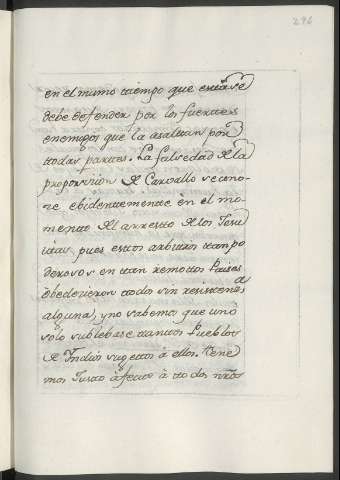 296
en el mismo tiempo que esta se
debe defender por los fuertes
enemigos que la asaltan por
todas partes. La falsedad de la
proporsision de Carvallo se cono-
ze ebidentemente en el mo-
mento del arresto de los Jesu
itas, pues estos arbitros tan po
derosos en tan remotos Paises
obedecieron a todo sin resistencia
alguna, y no sabemos que uno
solo sublebase tantos Pueblos
de Indios sugettos à ellos. Tene
mos Justo afecto à todos nrõs